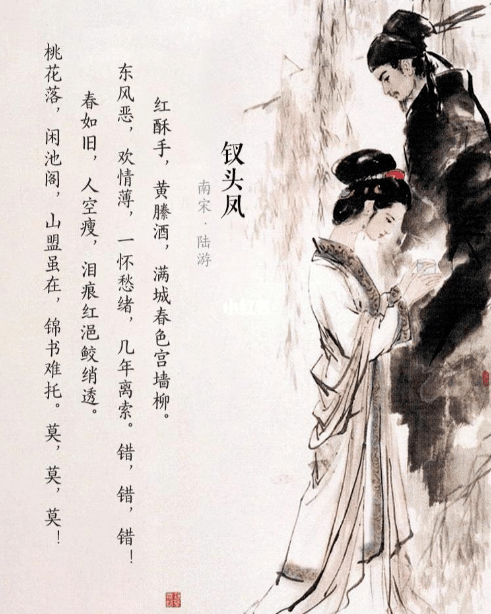 钗头凤
南宋·陆游
红酥手，黄縢酒，满城春色宫墙柳。
东风恶，欢情薄，一怀愁绪，几年离索。错，错，错！
春如旧，人空瘦，泪痕红浥鲛绡透。
桃花落，闲池阁，山盟虽在，锦书难托。莫，莫，莫！
小红书